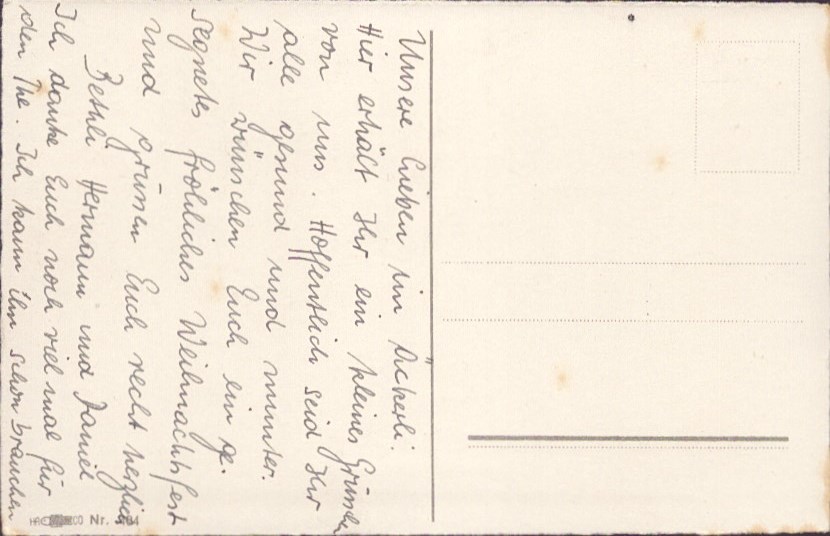 Unsere Lieben im Äckerli.
Hier erhält Ihr ein kleines Grüssli
von uns. Hoffentlich seid Ihr
alle gesund und munter.
Wir wünschen Euch ein ge-
segnetes fröhliches Weihnachtsfest
und grüssen Euch recht herzlich
Bethli Hermann und Daniel
Ich danke Euch noch viel mal für
den The. Ich kann ihn schon brauchen
Nr.